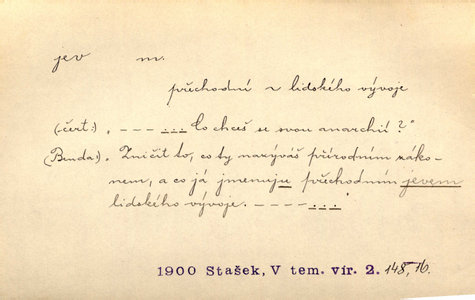 jev m.
přechodní z lidského vývoje
(čert:). - - - ... Co chceš se svou anarchií?"
(Benda:). Zničit to, co ty nazýváš přírodním záko-
nem, a co já jmenuju přechodním jevem
lidského vývoje. - - - - ..."
1900 Stašek, V tem. vír. 2. 148, 16.